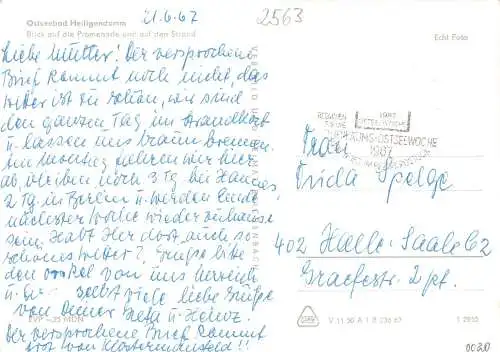 21.6.67
2563
Ostseebad Heiligendamm
Blick auf die Promenade und auf den Strand
Echt Foto
Liebe Mutter! Der versprochene
Brief kommt noch nicht, das
Wetter ist zu schön, wir sind
den ganzen Tag im Strandkorb
u. lassen uns braun brennen.
Im Montag fahren wir hier
ab, bleiben noch 3 Tg. bei Hannes
2 Tg. in Berlin u. werden Ende
nächster Woche wieder zuhause
sein. Habt Ihr dort auch so
schönes Wetter? Grüße bitte
den Onkel von uns herzlich
u. selbst viele liebe Grüße
von Deiner Greta u. Heinz.
Der versprochene Brief kommt
erst von Klostermansfeld!!
1967
OSTSEEWOCHE
1967
Frau
Frida Spelge
402 Halle-Saale 62
Graefestr. 2 pt.
V 11 50 A 1 B 236 67
1 2950
0020